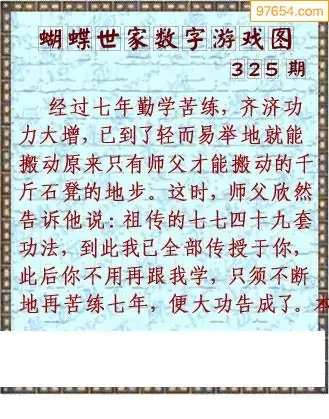 97654.com
蝴蝶世家数字游戏图
325期
经过七年勤学苦练，齐济功
力大增，已到了轻而易举地就能
搬动原来只有师父才能搬动的千
斤石凳的地步。这时，师父欣然
告诉他说：祖传的七七四十九套
功法，到此我已全部传授于你，
此后你不用再跟我学，只须不断
地再苦练七年，便大功告成了。本